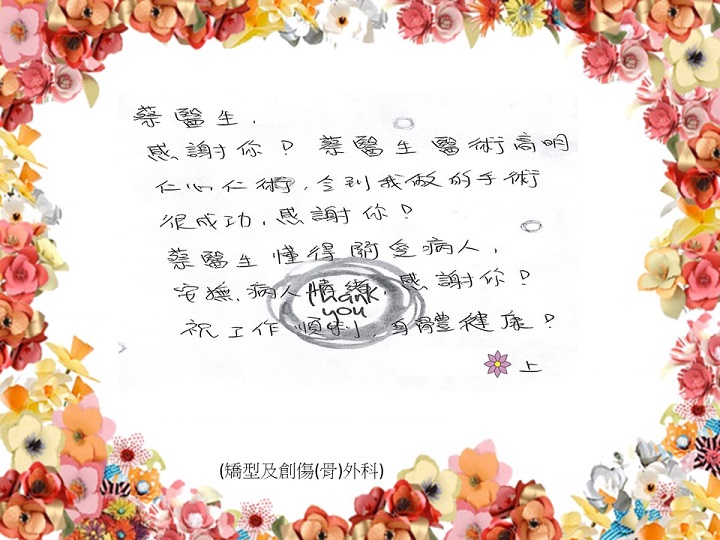 蔡醫生，
感謝你？蔡醫生醫術高明
仁心仁術，令到我做的手術
很成功，感謝你？
蔡醫生懂得關愛病人，
安撫病人情緒，感謝你？
祝工作順利，身體健康？
Thank
you
上
(矯型及創傷(骨)外科)